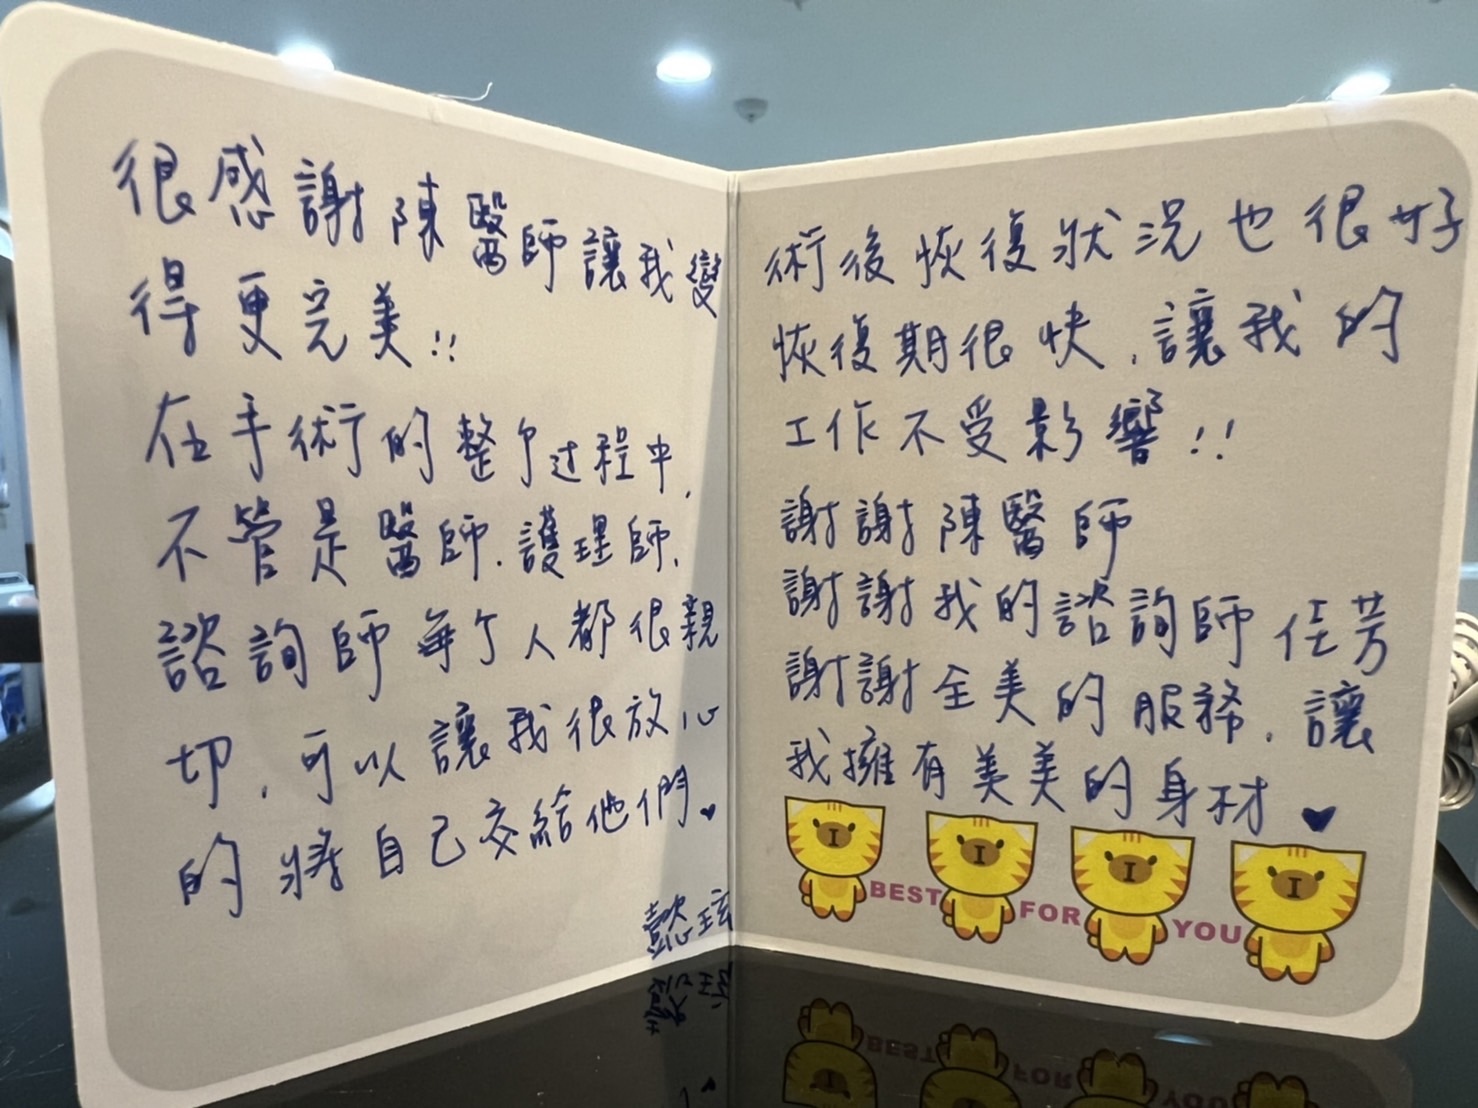 很感謝陳醫師讓我變
得更完美!!
在手術的整个过程中,
不管是醫師、護理師、
諮詢師每个人都很親
切,可以讓我很放心
的將自己交給他們♥
懿玹
術後恢復狀況也很好
恢復期很快,讓我的
工作不受影響!!
謝謝陳醫師
謝謝我的諮詢師任芳
謝謝全美的服務,讓
我擁有美美的身材♥
BEST FOR YOU